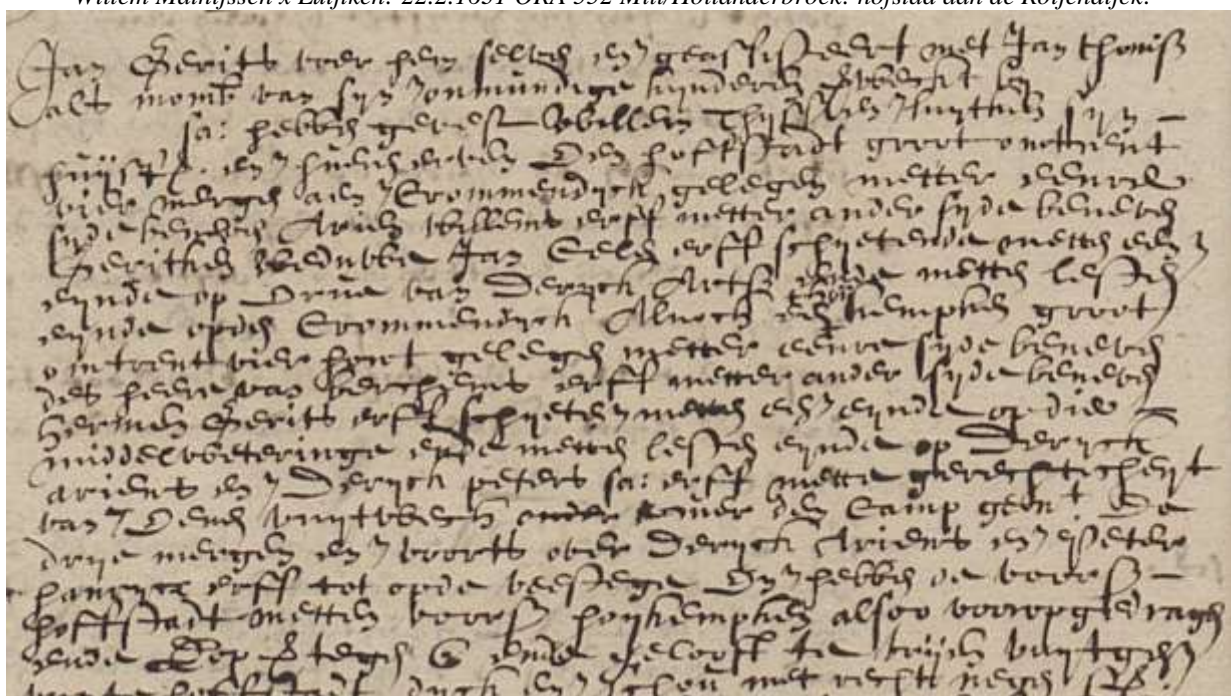 Willem Mathijssen x Luijtken. 22.2.1631 ORA 332 Mill/Hollanderbroek. hofstad aan de Roijendijck.
Jan Gerits voer hem selven en geassisteert met Jan thoniss
als momb van syn onmundige kynderen verweckt by
sa: hebben gevest Willem Thyssen luytken syn
huijsfr. en hueren erven Den hoffstadt groot omtrent
vier mergen aen Crommendyck gelegen metter eenre
syde beneven Ariens Willems erff metter ander syde beneven
Gerithen Wedubbe Jan Celen erff schietende metten een
eynde op erve van Deryck Artss ende metten lesten
eynde opden Crommendyck Alnoch een hoykempken groot
omtrent vier hont gelegen metter eenre syde beneven
des heere van Berchems erff metter ander syde beneven
Hermen Gerits erff schieten metten een eynde op die
middelweteringe ende metten lesten eynde op Deryck
ariens en Deryck peters sa: erff mette gerechticheyt
van Denen vuytwech over den Camp gent De
drije mergen en voorts over Deryck Ariens en peter
erff tot opde veestege En hebben de voors
hoffstadt metten voors hoykempken alsoo vooropgedragen
ende tegen ende geloeft te vryen vuytgen
hoffstadt dyck en schou met recht